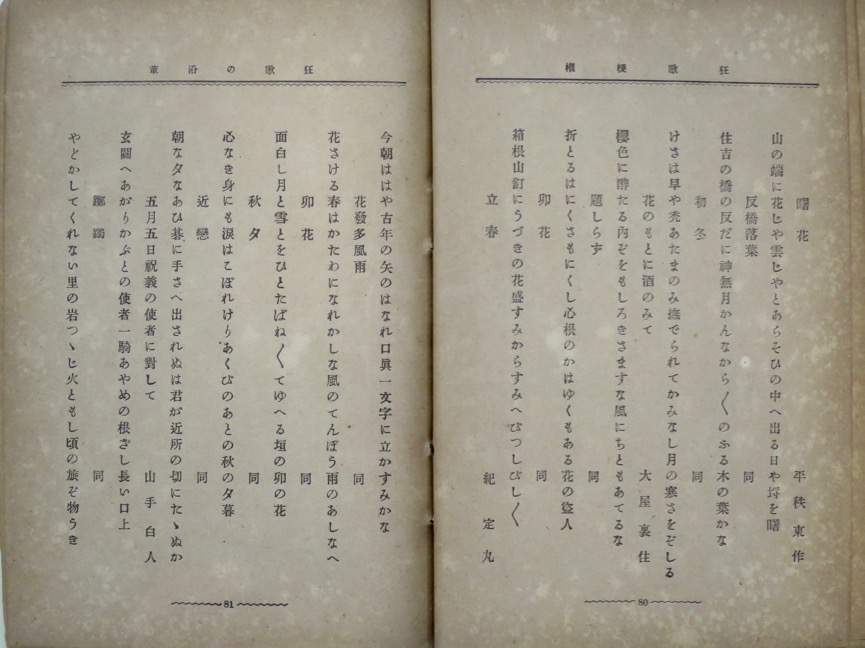 狂歌梗概
曙花　平秩東作
山の端に花じや雲じやとあらそひの中へ出る日や埒を曙
反橋落葉　同
住吉の橋の反だに神無月かんなから〳〵のふる木の葉かな
初冬　同
けさは早や禿あたまのみ撫でられてかみなし月の寒さをぞしる
花のもとに酒のみて　大屋裏住
櫻色に醉たる内ぞをもしろきさますな風にちともあてるな
題しらず　同
折とるはにくさもにくし心根のかはゆくもある花の盜人
卯花　同
箱根山釘にうづきの花盛すみからすみへびつしびし〳〵
立春　紀定丸
80
狂歌の沿革
今朝ははや古年の矢のはなれ口眞一文字に立かすみかな
花發多風雨　同
花さける春はかたわになれかしな風のてんぼう雨のあしなへ
卯花　同
面白し月と雪とをひとたばね〳〵てゆへる垣の卯の花
秋夕　同
心なき身にも涙はこぼれけりあくびのあとの秋の夕暮
近戀　同
朝な夕なあひ碁に手さへ出されぬは君が近所の切にたゝぬか
五月五日祝義の使者に對して　山手白人
玄關へあがりかぶとの使者一騎あやめの根ざし長い口上
躑躅　同
やどかしてくれない里の岩つゝじ火ともし頃の旅ぞ物うき
81